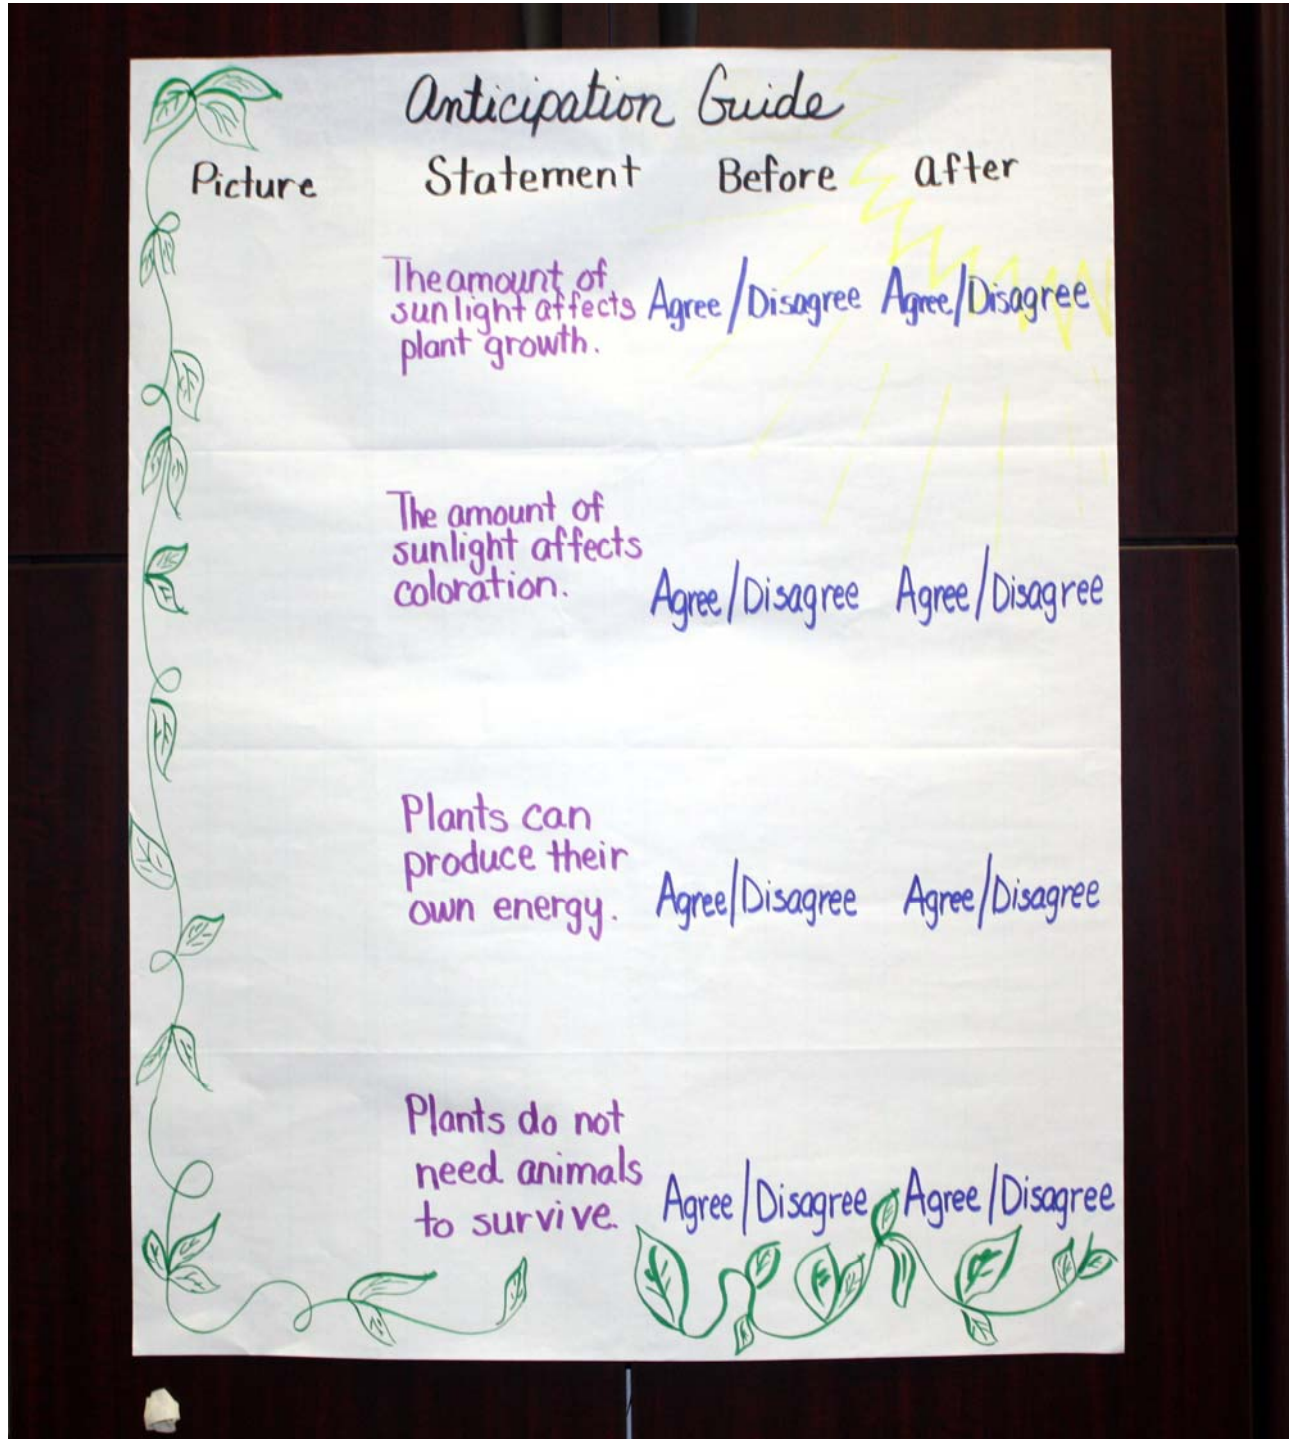 Anticipation Guide
Picture Statement Before After
The amount of
sunlight affects Agree/Disagree Agree/Disagree
plant growth.
The amount of
sunlight affects
coloration. Agree/Disagree Agree/Disagree
Plants can
produce their
own energy. Agree/Disagree Agree/Disagree
Plants do not
need animals
to survive. Agree/Disagree Agree/Disagree